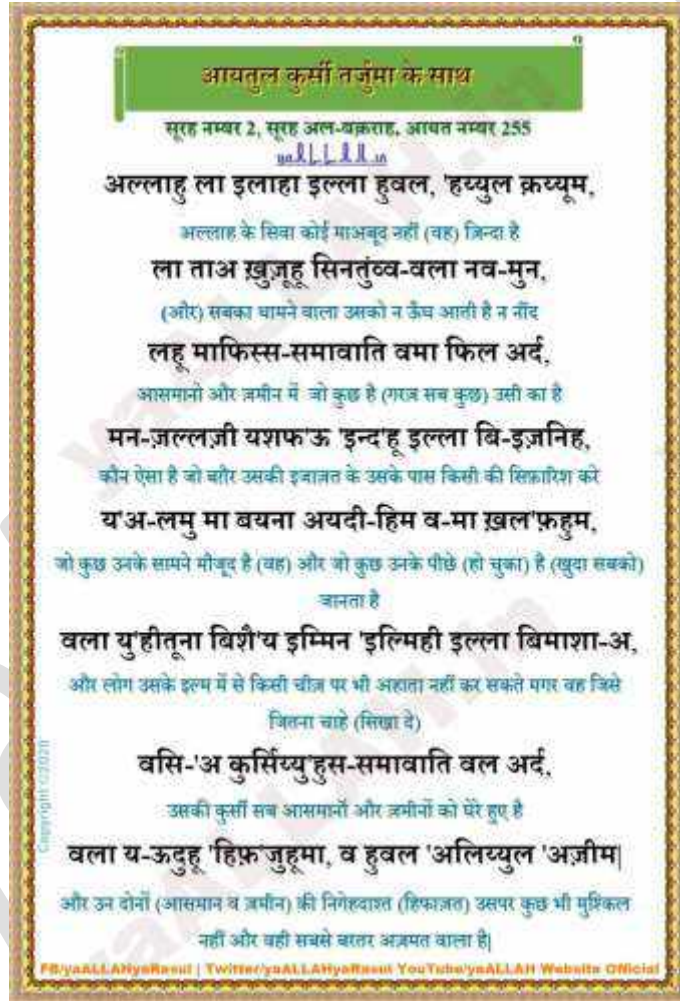 आयतुल कुर्सी तर्जुमा के साथ
सूरह नम्बर 2, सूरह अल-बक़राह, आयत नम्बर 255
yaALLAH.in
अल्लाहु ला इलाहा इल्ला हुवल, 'हय्युल क़य्यूम,
अल्लाह के सिवा कोई माअबूद नहीं (वह) ज़िन्दा है
ला ताअ ख़ुज़ूहू सिनतुंव्व-वला नव-मुन,
(और) सबका थामने वाला उसको न ऊँघ आती है न नींद
लहू माफिस्स-समावाति वमा फिल अर्द,
आसमानो और ज़मीन में जो कुछ है (गरज़ सब कुछ) उसी का है
मन-ज़ल्लज़ी यशफ'ऊ 'इन्द'हू इल्ला बि-इज़निह,
कौन ऐसा है जो बग़ैर उसकी इजाज़त के उसके पास किसी की सिफ़ारिश करे
य'अ-लमु मा बयना अयदी-हिम व-मा ख़ल'फ़हुम,
जो कुछ उनके सामने मौजूद है (वह) और जो कुछ उनके पीछे (हो चुका) है (खुदा सबको)
जानता है
वला यु'हीतूना बिशै'य इम्मिन 'इल्मिही इल्ला बिमाशा-अ,
और लोग उसके इल्म में से किसी चीज़ पर भी अहाता नहीं कर सकते मगर वह जिसे
जितना चाहे (सिखा दे)
वसि-'अ कुर्सिय्यु'हुस-समावाति वल अर्द,
उसकी कुर्सी सब आसमानों और ज़मीनों को घेरे हुए है
वला य-ऊदुहू 'हिफ़'ज़ुहूमा, व हुवल 'अलिय्युल 'अज़ीम|
और उन दोनों (आसमान व ज़मीन) की निगेहदाश्त (हिफाज़त) उसपर कुछ भी मुश्किल
नहीं और वही सबसे बरतर अज़मत वाला है|
Copyright ©2020
FB/yaALLAHyaRasul | Twitter/yaALLAHyaRasul YouTube/yaALLAH Website Official